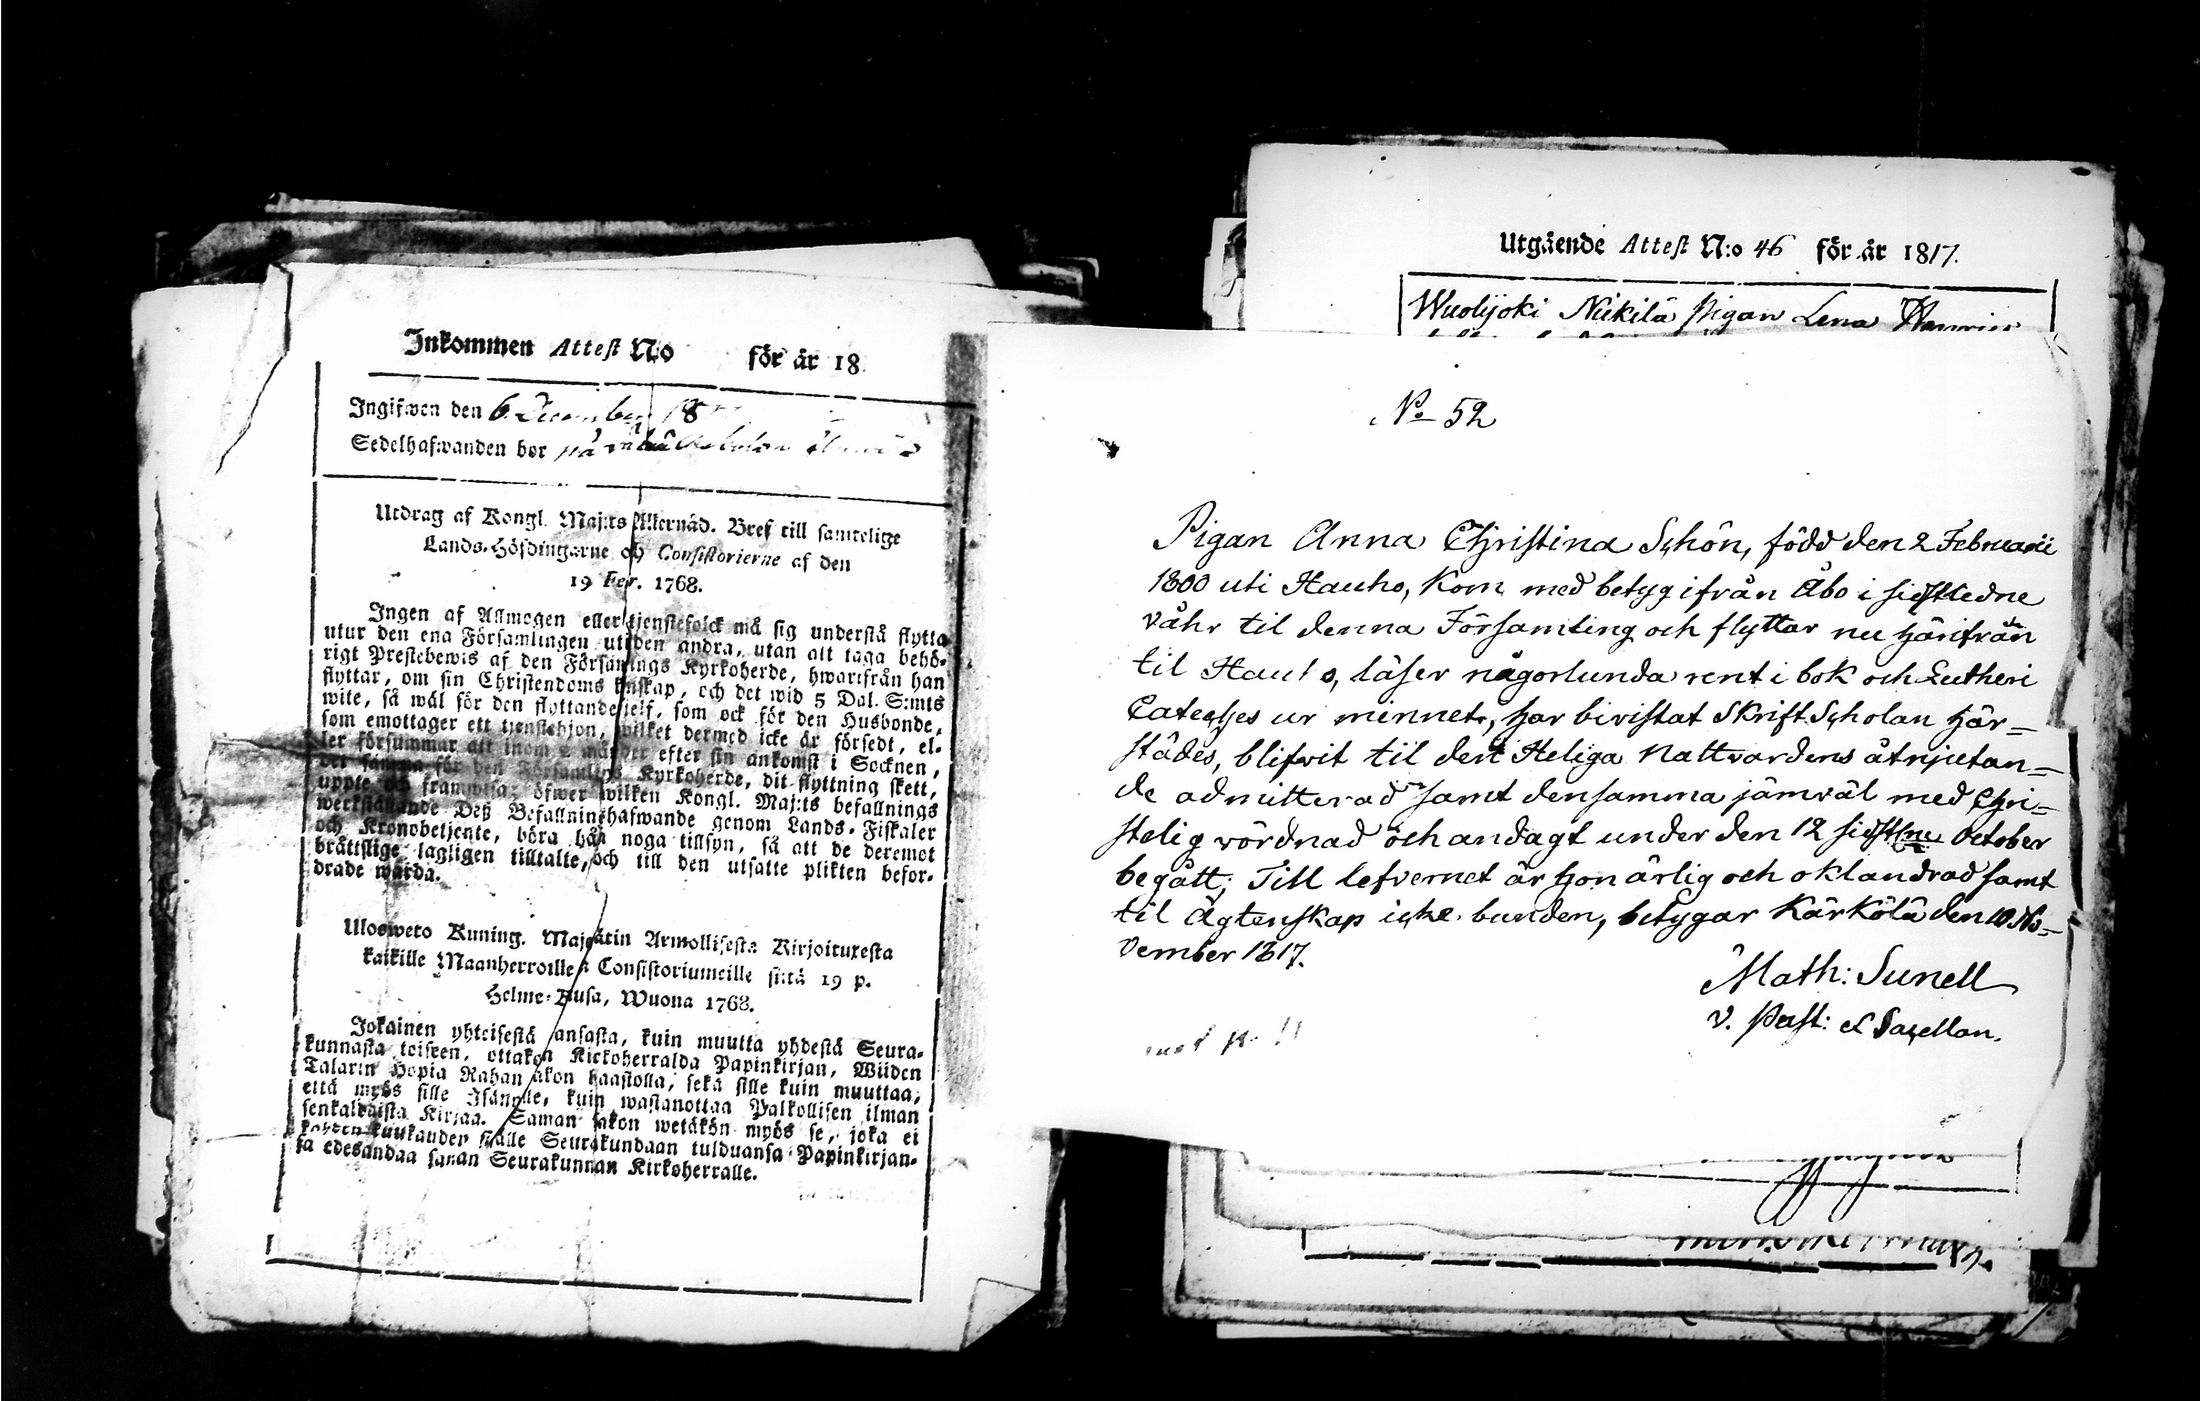 Inkommen Attest N:o för år 18
Ingifwen den 6 December 18
Sedelhafwanden bor på
Utdrag af Kongl. Maj:ts Allernåd. Bref till samtelige
Lands-Höfdingarne och Consistorierne af den
19 Febr. 1768.
Ingen af Allmogen eller tjenstefolck må sig understå flytta
utur den ena Församlingen uti den andra, utan att taga behö-
rigt Prestebewis af den Församlings Kyrkoherde, hwarifrån han
flyttar, om sin Christendoms kunskap, och det wid 5 Dal. S:mts
wite, så wäl för den flyttande sjelf, som ock för den Husbonde,
som emottager ett tjenstehjon, hwilket dermed icke är försedt, el-
ler försummar att inom 2 månader efter sin ankomst i Socknen,
det samma för den Församlings Kyrkoherde, dit flyttning skett,
uppte och framwisa; öfwer hwilken Kongl. Maj:ts befallnings
werkställande Deß Befallningshafwande genom Lands-Fiskaler
och Kronobetjente, böra hafwa noga tillsyn, så att de deremot
bråttslige lagligen tilltalte, och till den utsatte plikten befor-
drade warda.
Ulosweto Kuning. Majestätin Armollisesta Kirjoituxesta
kaikille Maanherroille ja Consistoriumeille siitä 19 p.
Helme-Kusa, Wuona 1768.
Jokainen yhteisestä kansasta, kuin muutta yhdestä Seura-
kunnasta toiseen, ottakon Kirkoherralda Papinkirjan, Wiiden
Talarin Hopia Rahan sakon haastolla, sekä sille kuin muuttaa,
että myös sille Isännälle, kuin wastanottaa Palkollisen ilman
senkaltaista Kirjaa. Saman sakon wetäkön myös se, joka ei
kahden kuukauden sisälle Seurakundaan tulduansa Papinkirjan-
sa edesandaa sanan Seurakunnan Kirkoherralle.
Utgående Attest N:o 46 för år 1817.
Wuolijoki Nikilä Pigan Lena
No 52
Pigan Anna Christina Schön, född den 2 Februarii
1800 uti Hauho, kom med betyg ifrån Åbo i sidstledne
våhr til denna Församling och flyttar nu härifrån
til Hauho, läser någorlunda rent i bok och Lutheri
Cateches ur minnet, har bivistat Skrift Scholan här=
städes, blifvit til den Heliga Nattvardens åtnjutan=
de admitterad samt densamma jämväl med Chri=
stelig vördnad och andagt under den 12 sidstlne October
begått; Till lefvernet är hon ärlig och oklandrad samt
til Ägtenskap icke bunden, betygar Kärkölä den 10 No=
vember 1817.
Math: Sunell
v. Past: et Sacellan.